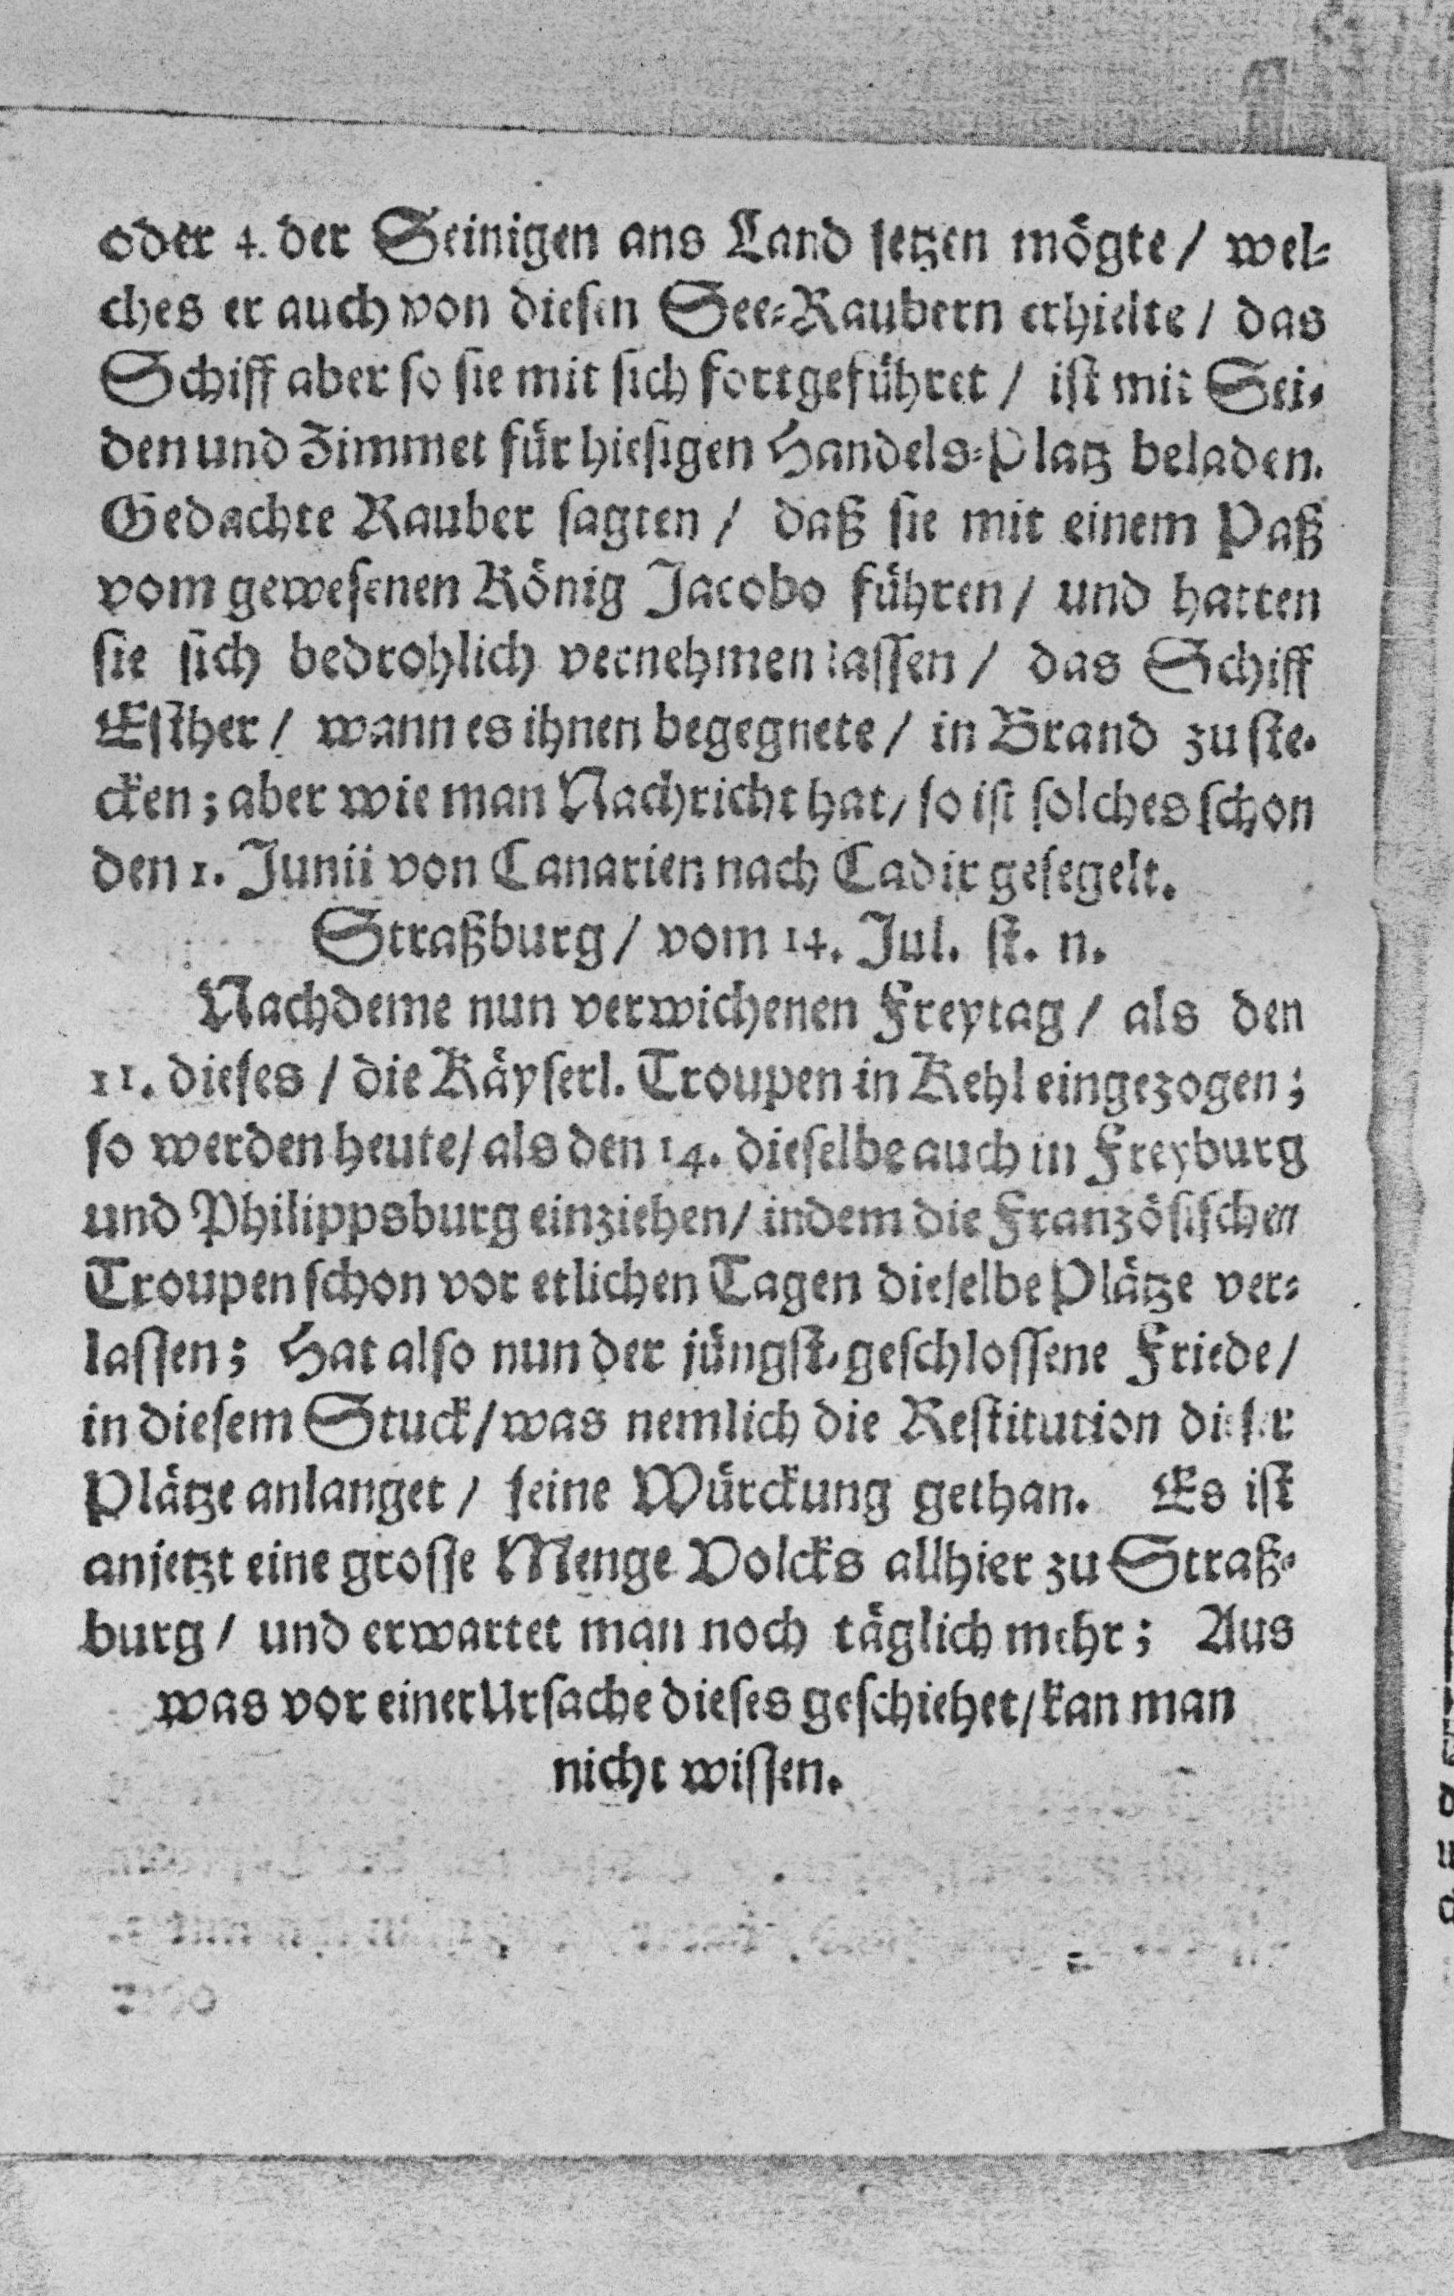 oder 4. der Seinigen ans Land setzen mögte / wel-
ches er auch von diesen See-Raubern erhielte / das
Schiff aber so sie mit sich fortgeführet / ist mit Sei-
den und Zimmet für hiesigen Handels-Platz beladen.
Gedachte Rauber sagten / daß sie mit einem Paß
vom gewesenen König Jacobo führen / und hatten
sie sich bedrohlich vernehmen lassen / das Schiff
Esther / wann es ihnen begegnete / in Brand zu ste-
cken; aber wie man Nachricht hat / so ist solches schon
den 1. Junii von Canarien nach Cadix gesegelt.
Straßburg / vom 14. Jul. st. n.
Nachdeme nun verwichenen Freytag / als den
11. dieses / die Käyserl. Troupen in Kehl eingezogen;
so werden heute / als den 14. dieselbe auch in Freyburg
und Philippsburg einziehen / indem die Französischen
Troupen schon vor etlichen Tagen dieselbe Plätze ver-
lassen; Hat also nun der jüngst-geschlossene Friede /
in diesem Stuck / was nemlich die Restitution dieser
Plätze anlanget / seine Würckung gethan. Es ist
anjetzt eine grosse Menge Volcks allhier zu Straß-
burg / und erwartet man noch täglich mehr; Aus
was vor einer Ursache dieses geschiehet / kan man
nicht wissen.